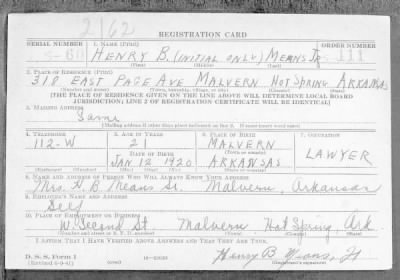 2162
REGISTRATION CARD
SERIAL NUMBER 1. NAME (Print) ORDER NUMBER
S- 60 HENRY B. (INITIAL ONLY) MEANS JR. S 111
(First) (Middle) (Last)
2. PLACE OF RESIDENCE (Print)
318 EAST PAGE AVE MALVERN HOT SPRING ARKANSAS
(Number and street) (Town, township, village, or city) (County) (State)
[THE PLACE OF RESIDENCE GIVEN ON THE LINE ABOVE WILL DETERMINE LOCAL BOARD
JURISDICTION; LINE 2 OF REGISTRATION CERTIFICATE WILL BE IDENTICAL]
3. MAILING ADDRESS
Same
[Mailing address if other than place indicated on line 2. If same insert word same]
4. TELEPHONE 5. AGE IN YEARS 6. PLACE OF BIRTH 7. OCCUPATION
112-W 2 MALVERN
JAN 12 1920 ARKANSAS LAWYER
8. NAME AND ADDRESS OF PERSON WHO WILL ALWAYS KNOW YOUR ADDRESS
Mrs. H. B. Means Sr. Malvern, Arkansas
9. EMPLOYER'S NAME AND ADDRESS
Self
10. PLACE OF EMPLOYMENT OR BUSINESS
W. Second St Malvern Hot Spring Ark
(Number and street or R. F. D. number) (Town) (County) (State)
I AFFIRM THAT I HAVE VERIFIED ABOVE ANSWERS AND THAT THEY ARE TRUE.
D. S. S. Form 1 Henry B Means, Jr
(Revised 6-9-41)